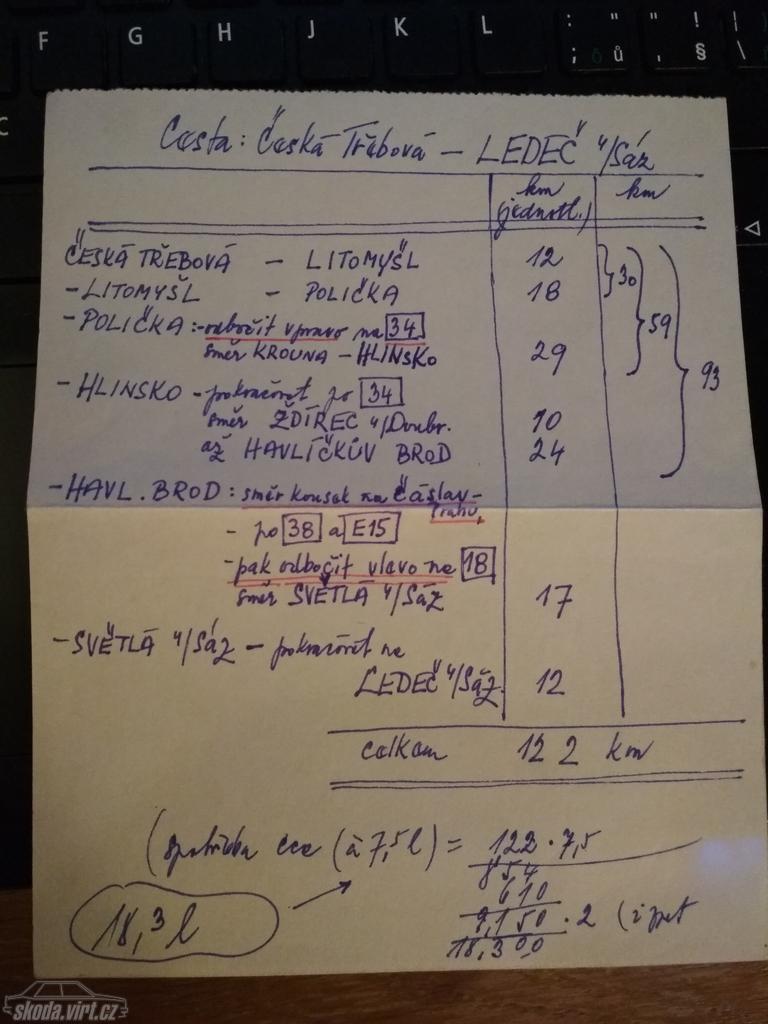 F G H J K L : " " ! |
; ů , . § \
C
Cesta: Česká Třebová – LEDEČ n/Sáz
km km
(jednotl.)
ČESKÁ TŘEBOVÁ – LITOMYŠL 12
– LITOMYŠL – POLIČKA 18 } 30
– POLIČKA: – odbočit vpravo na 34 } 59
směr KROUNA – HLINSKO 29
– HLINSKO – pokračovat po 34 } 93
směr ŽDÍREC n/Doubr. 10
až HAVLÍČKŮV BROD 24
– HAVL. BROD: směr kousek na Čáslav –
Prahu,
– po 38 a E15
– pak odbočit vlevo na 18
směr SVĚTLÁ n/Sáz 17
– SVĚTLÁ n/Sáz – pokračovat na
LEDEČ n/Sáz. 12
celkem 122 km
(spotřeba cca (à 7,5 l) = 122 · 7,5
854
610
9,150 · 2 (zpět
18,300
18,3 l
skoda.virt.cz